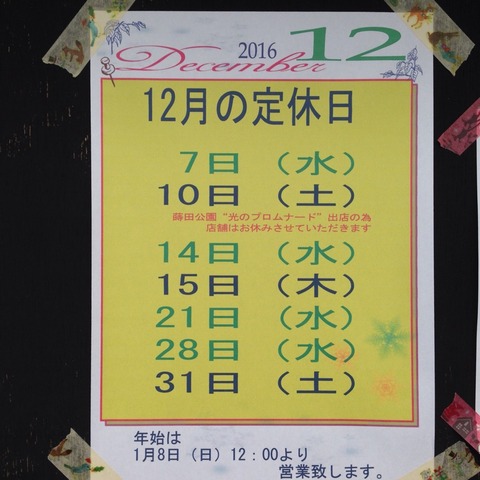 2016 12
December
12月の定休日
7日（水）
10日（土）
蒔田公園“光のプロムナード”出店の為
店舗はお休みさせていただきます
14日（水）
15日（木）
21日（水）
28日（水）
31日（土）
年始は
1月8日（日）12：00より
営業致します。